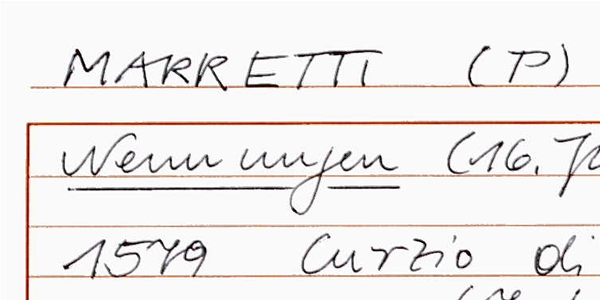 MARRETTI (P)
Nennungen (16. Jh
1579 Curzio di